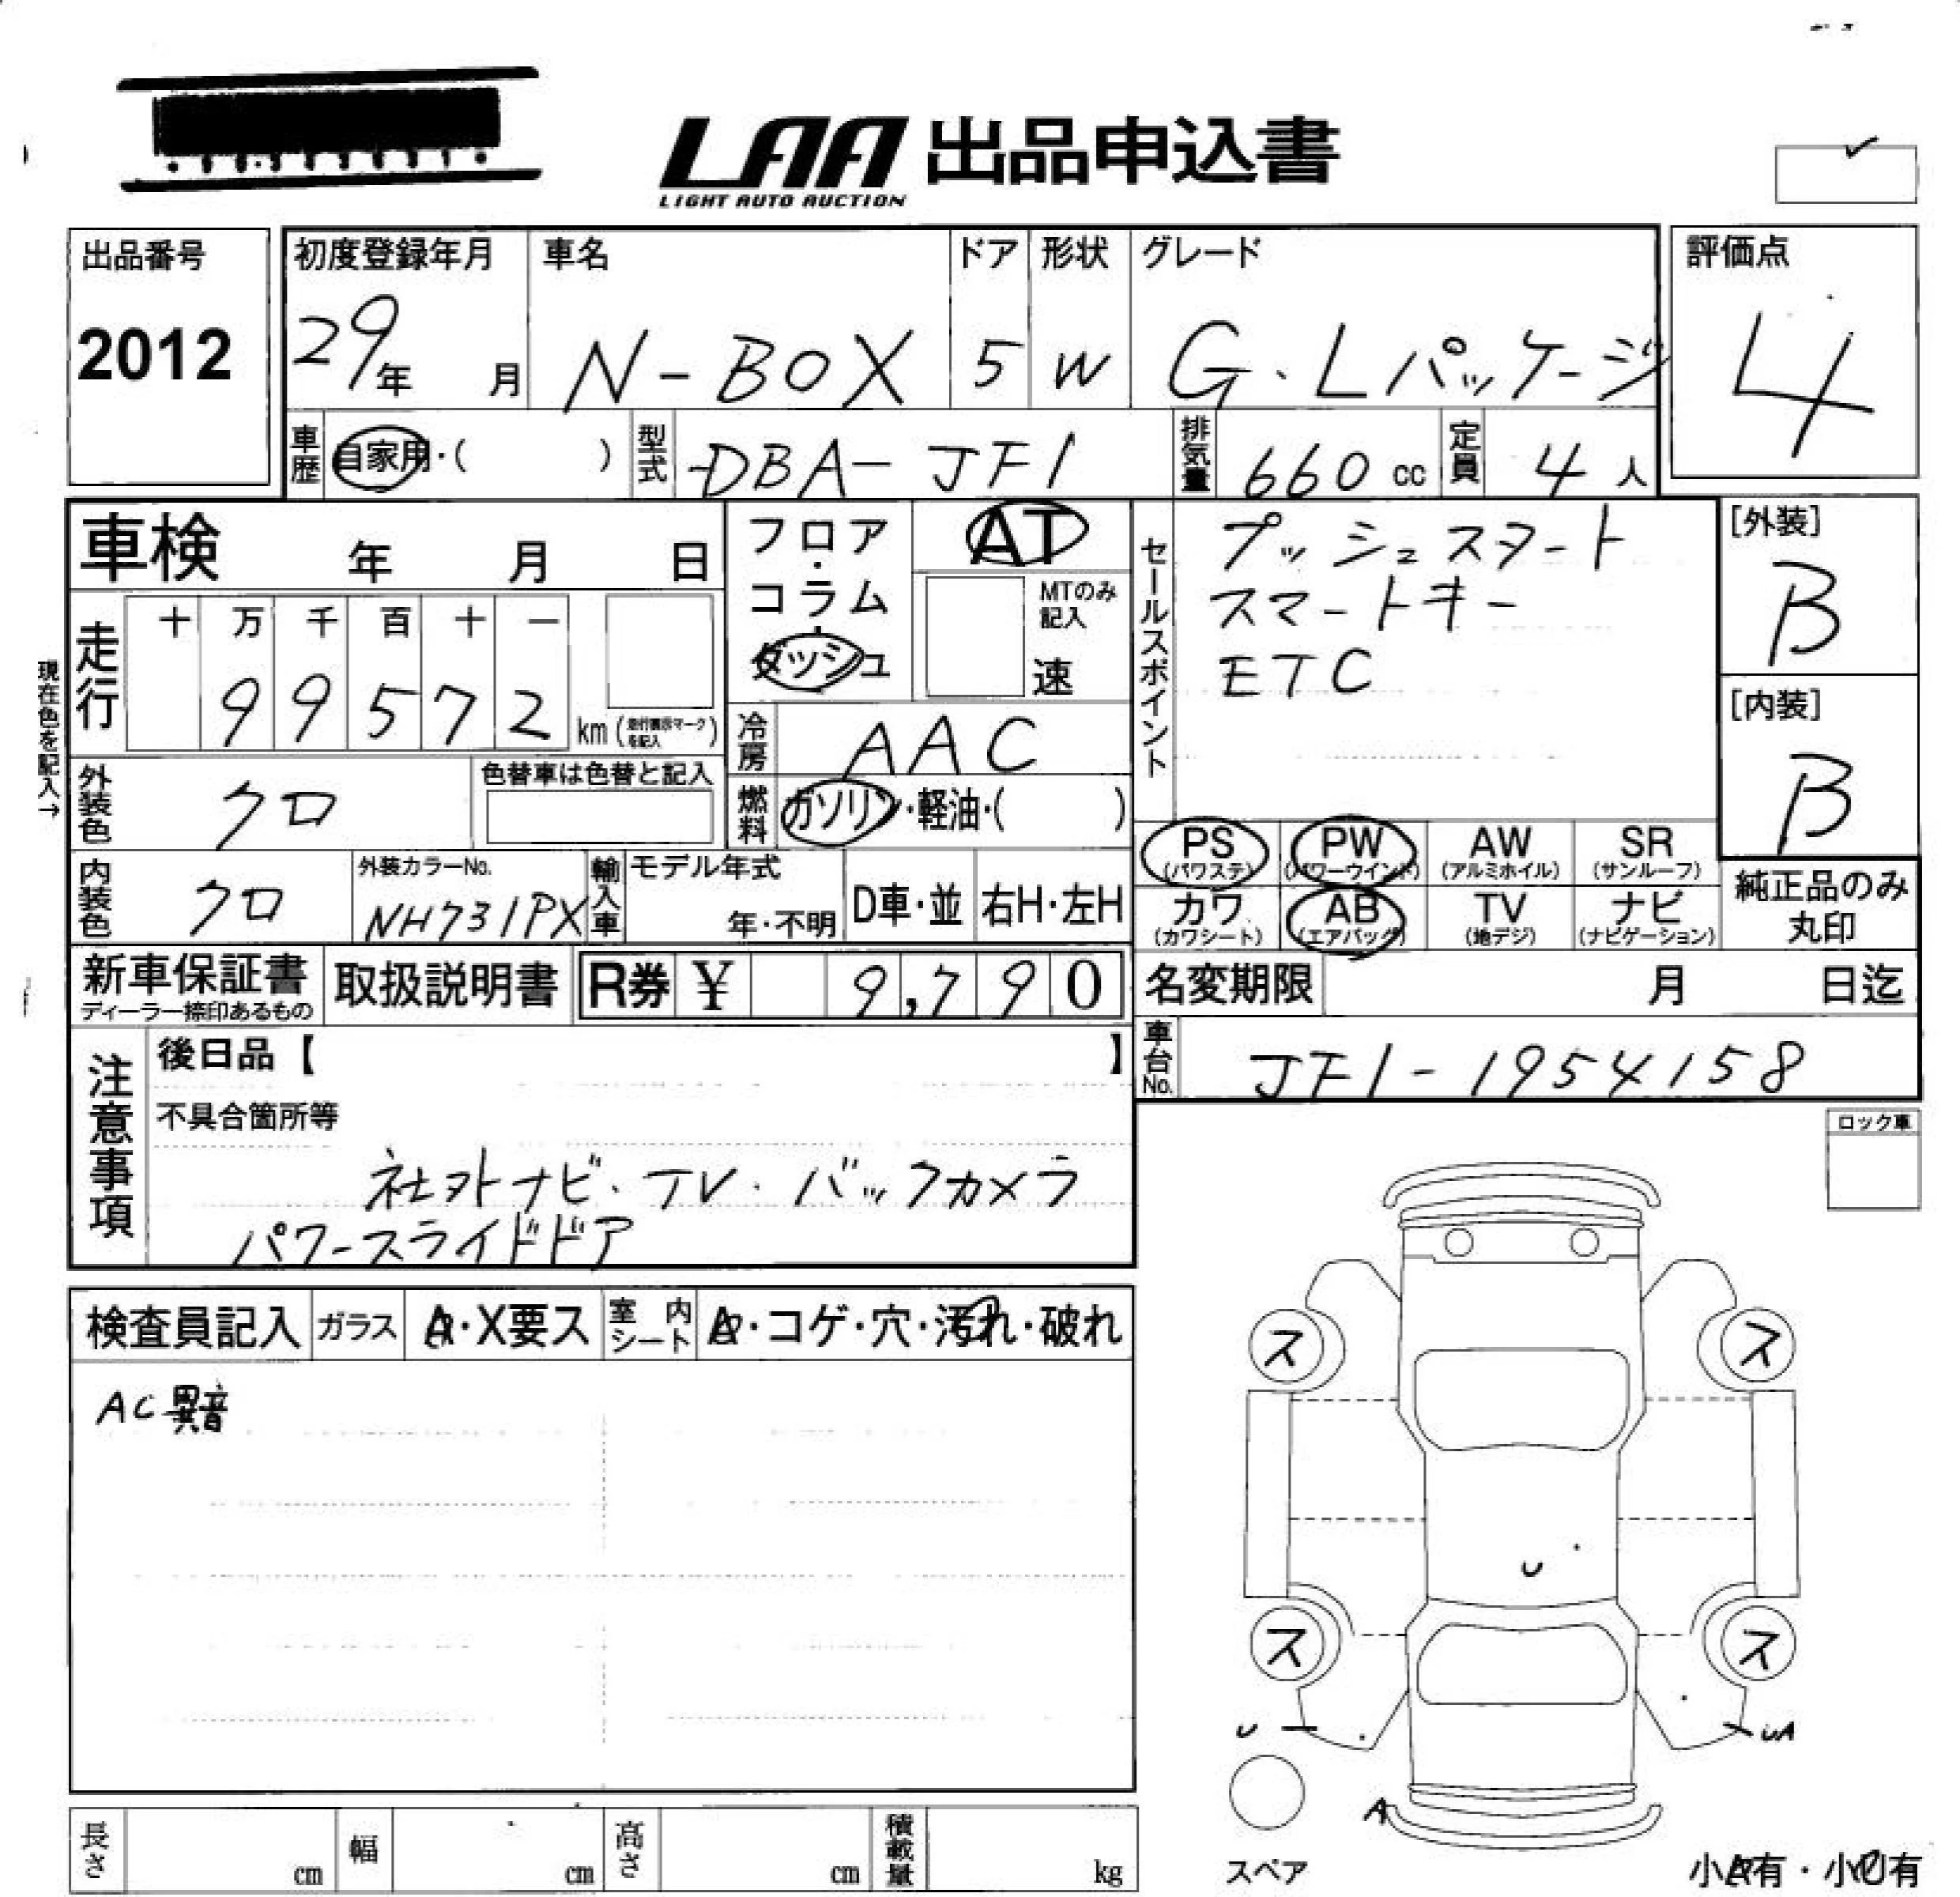 LAA 出品申込書
LIGHT AUTO AUCTION
出品番号
2012
初度登録年月
29年 月
車名
N-BOX
ドア
5
形状
W
グレード
G・Lパッケージ
評価点
4
車歴 自家用・( )
型式 DBA-JF1
排気量 660 cc
定員 4 人
車検 年 月 日
フロア・コラム・ダッシュ
AT
MTのみ記入
速
セールスポイント
プッシュスタート
スマートキー
ETC
[外装]
B
[内装]
B
現在色を記入→
走行
十 万 千 百 十 一
9 9 5 7 2 km (走行表示マークを記入)
冷房 AAC
燃料 ガソリン・軽油・( )
外装色 クロ
色替車は色替と記入
内装色 クロ
外装カラーNo.
NH731PX
輸入車
モデル年式
年・不明
D車・並
右H・左H
PS (パワステ)
PW (パワーウインド)
AW (アルミホイル)
SR (サンルーフ)
カワ (カワシート)
AB (エアバッグ)
TV (地デジ)
ナビ (ナビゲーション)
純正品のみ
丸印
新車保証書
ディーラー捺印あるもの
取扱説明書
R券 ¥ 9,790
名変期限 月 日迄
車台No. JF1-1954158
注意事項
後日品【 】
不具合箇所等
社外ナビ・TV・バックカメラ
パワースライドドア
ロック車
検査員記入
ガラス A・X要ス
室内シート A・コゲ・穴・汚れ・破れ
AC異音
ス ス
U
ス ス
U UA
A
スペア
長さ cm
幅 cm
高さ cm
積載量 kg
小A有・小U有